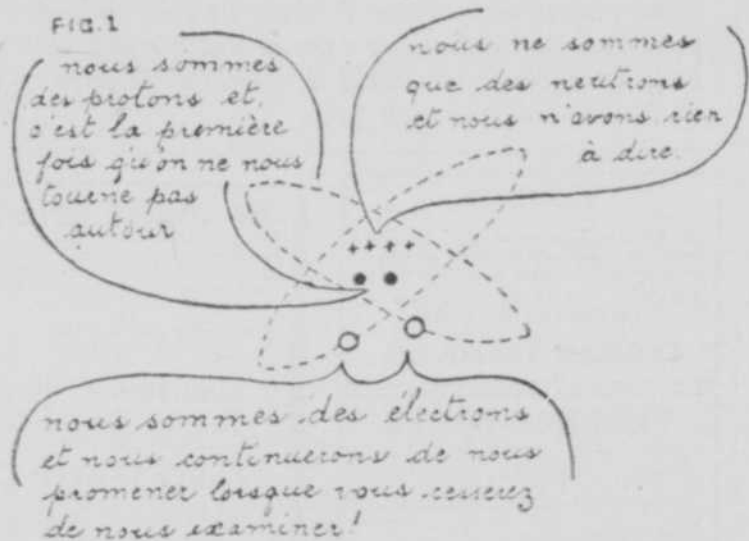 FIG.1
nous sommes
des protons et,
c'est la première
fois qu'on ne nous
tourne pas
autour
nous ne sommes
que des neutrons
et nous n'avons rien
à dire.
++++
nous sommes des électrons
et nous continuerons de nous
promener lorsque vous cesserez
de nous examiner!